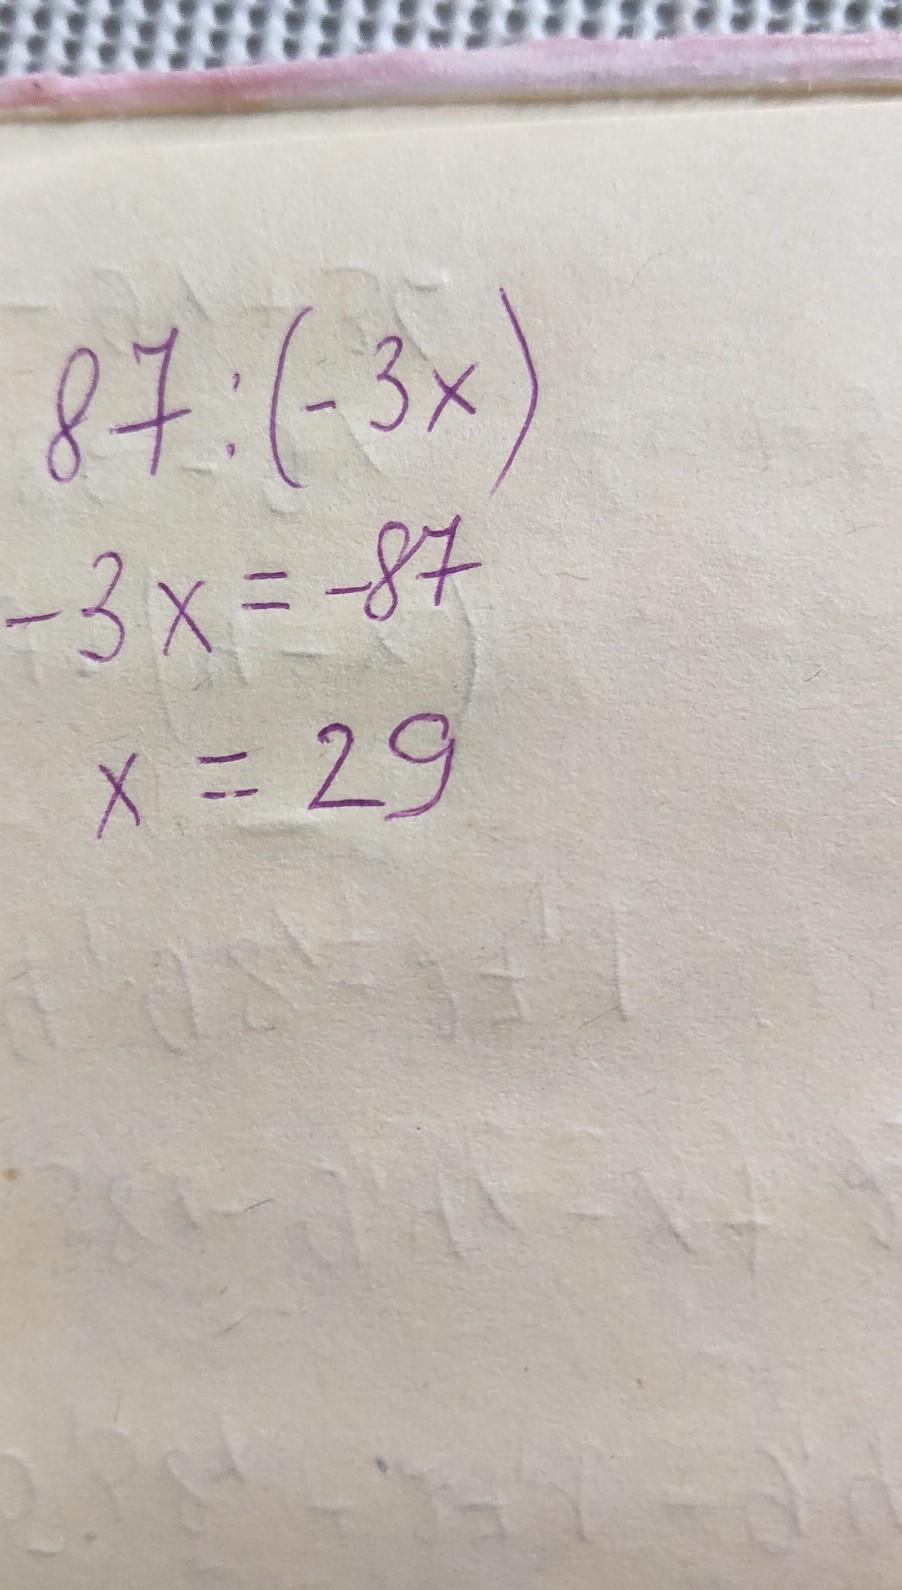 87:(-3x)
-3x=-87
x=29